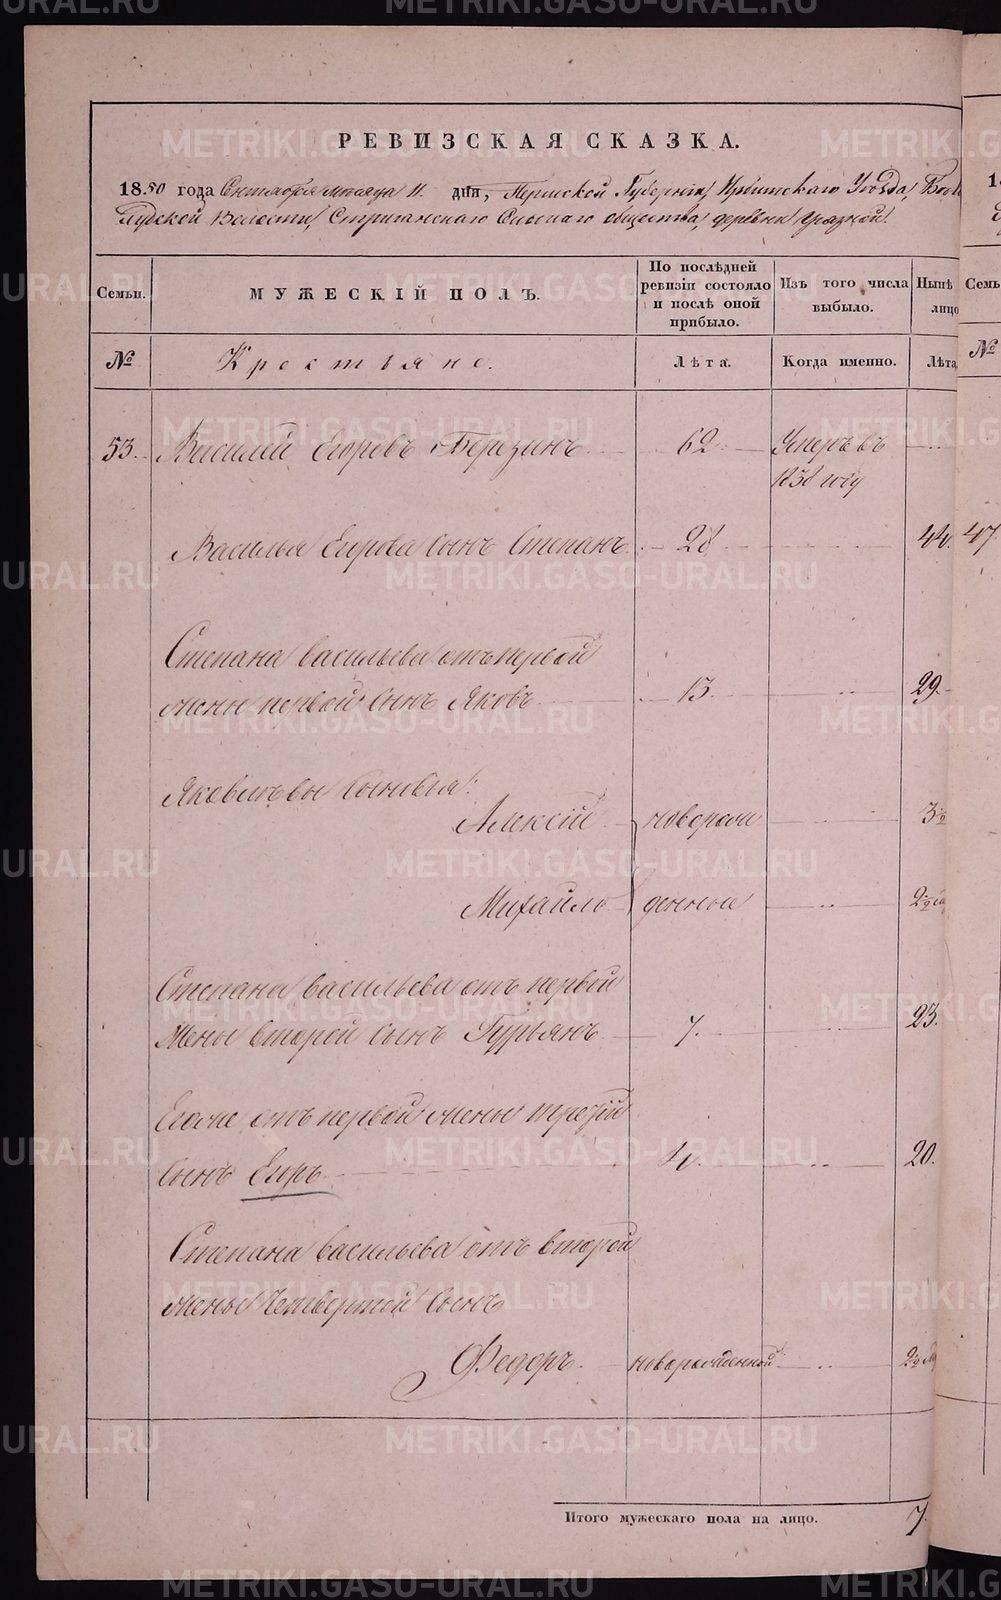 METRIKI.GASO-URAL.RU
РЕВИЗСКАЯ СКАЗКА.
1850 года Сентября месяца 11 дня, Пермской Губернии, Ирбитскаго Уезда,
Волости, Стриганскаго Сельскаго общества, деревни Грязной.
Семьи. МУЖЕСКІЙ ПОЛЪ. По послѣдней ревизіи состояло и послѣ оной прибыло. Изъ того числа выбыло. Нынѣ лицо
№ Крестьяне. Лѣта. Когда именно. Лѣта
53. Василий Егоровъ Березинъ 62 Умеръ въ
1838 году
Василья Егорова сынъ Степанъ 28 44.
Степана Васильева отъ первой
жены первой сынъ Яковъ 13 29
Яковлевы сыновья:
Алексий новорож 3
Михайло денныя 2
Степана Васильева отъ первой
жены второй сынъ Гурьянъ 7. 23.
Егоже отъ первой жены третий
сынъ Егоръ 4. 20.
Степана Васильева отъ второй
жены четвертой сынъ
Федоръ новорожденной 2
Итого мужескаго пола на лицо. 7.
Семь
№
47